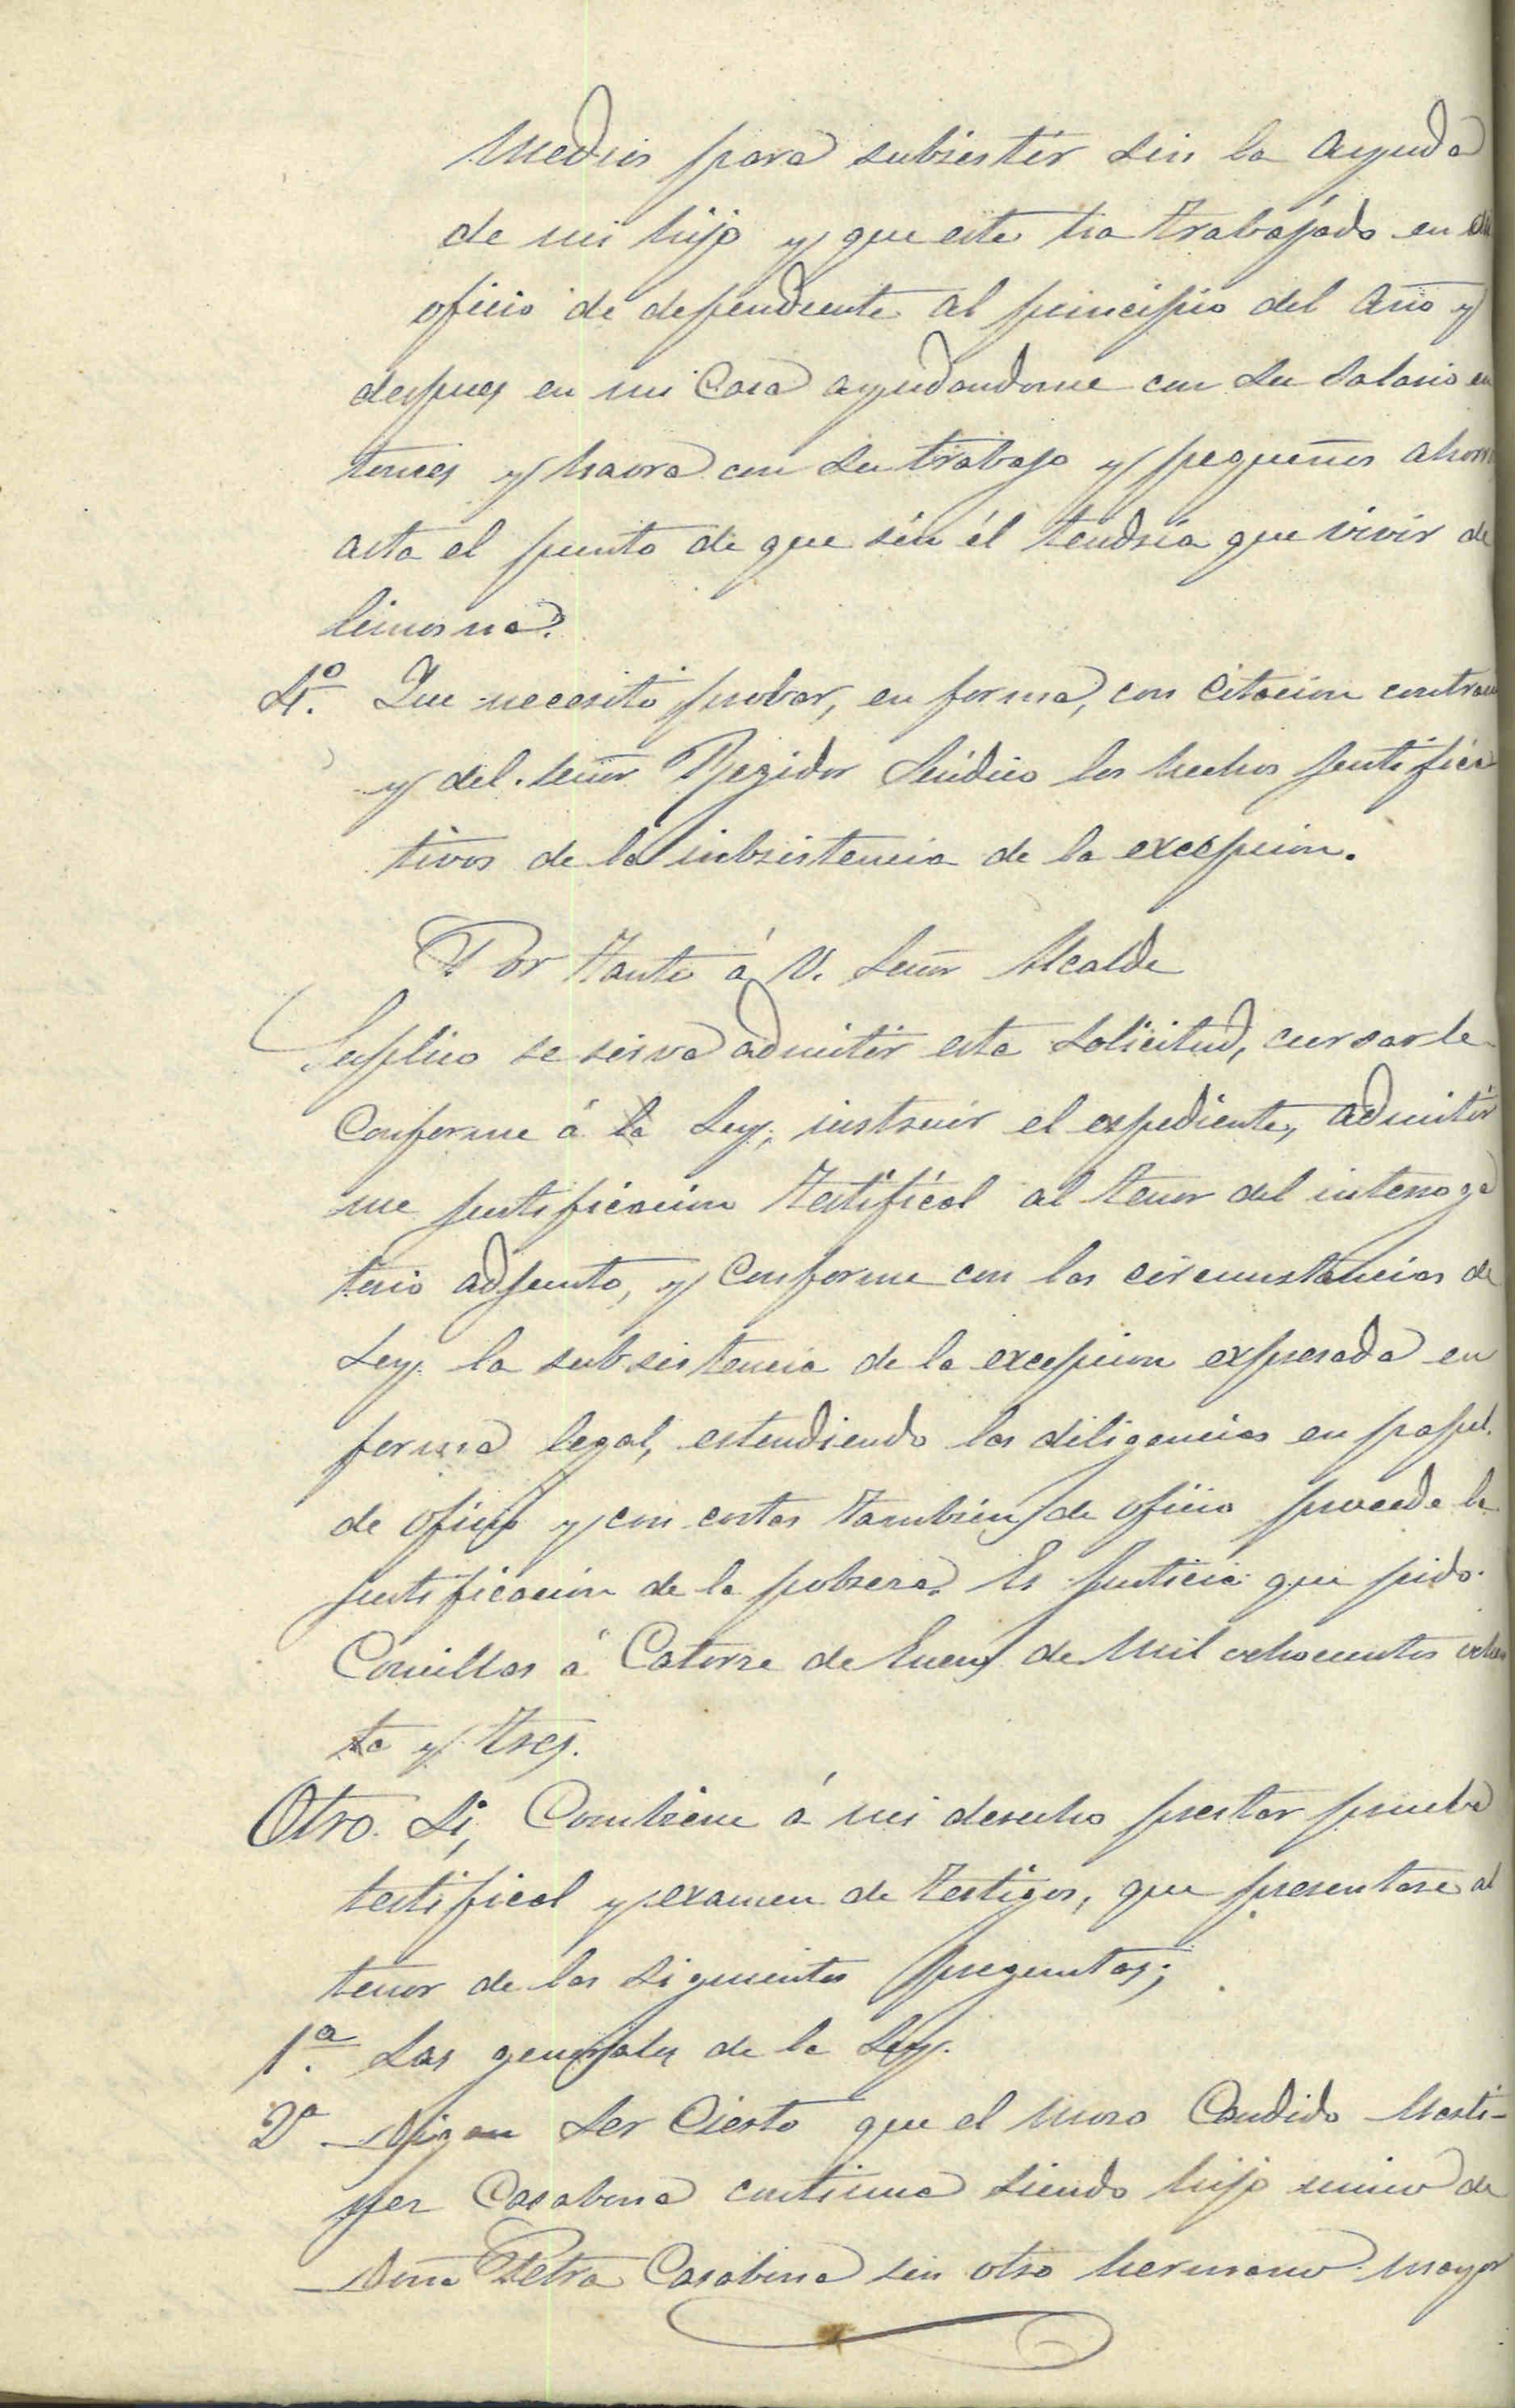 Medios para subsistir sin la ayuda
de mi hijo y que este ha trabajado en su
oficio de dependiente al principio del año y
despues en mi Casa ayudandome con su salario en
tonces y haora con su trabajo y pequeños ahorr
asta el punto de que sin él tendria que vivir de
limosna.
4º. Que necesito probar, en forma, con Citacion contraria
y del señor Regidor Sindico los hechos justifica
tivos de la subsistencia de la excepcion.
Por tanto á V. Señor Alcalde
Suplico se sirva admitir esta solicitud, cursarle
Conforme á la Ley, instruir el espediente, admitir
me justificacion testifical al tenor del interroga
torio adjunto, y Conforme con las circunstancias de
Ley la subsistencia de la excepcion expresada en
forma legal, estendiendo las diligencias en papel
de oficio y con costas tambien de oficio procede la
justificación de la pobreza. Es Justicia que pido.
Comillas á Catorze de Enero de Mil ochocientos ochen
ta y tres.
Otro. Si, Combiene á mi derecho prestar prueba
testifical y examen de testigos, que presentare al
tenor de las siguientes preguntas;
1ª. Las generales de la Ley.
2ª Digan ser Cierto que el mozo Candido
Casabona continua siendo hijo unico de
Doña Petra Casabona sin otro hermano mayor